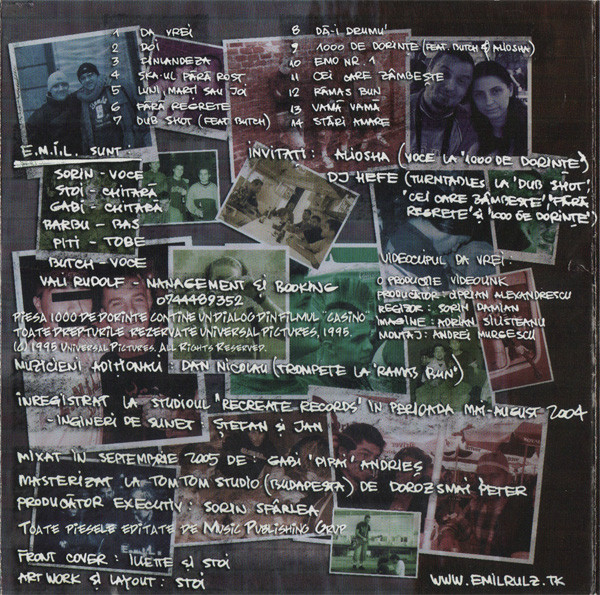 1 DA VREI
2 DOI
3 FINLANDEZA
4 SKA-UL FĂRĂ ROST
5 LUNI, MARȚI SAU JOI
6 FĂRĂ REGRETE
7 DUB SHOT (FEAT. BUTCH)
8 DĂ-I DRUMU'
9 1000 DE DORINȚE (FEAT. BUTCH & ALIOSHA)
10 EMO NR. 1
11 CEI CARE ZÂMBEȘTE
12 RĂMAS BUN
13 VAMĂ VAMĂ
14 STĂRI AMARE
E.M.I.L. SUNT:
SORIN - VOCE
STOI - CHITARĂ
GABI - CHITARĂ
BARBU - BAS
PITI - TOBE
BUTCH - VOCE
VALI RUDOLF - MANAGEMENT ȘI BOOKING
0744489352
INVITAȚI: ALIOSHA (VOCE LA "1000 DE DORINȚE")
DJ HEFE (TURNTABLES LA "DUB SHOT",
"CEI CARE ZÂMBEȘTE", "FĂRĂ
REGRETE" ȘI "1000 DE DORINȚE")
VIDEOCLIPUL DA VREI:
O PRODUCȚIE VIDEOLINK
PRODUCĂTOR: CIPRIAN ALEXANDRESCU
REGIZOR: SORIN DAMIAN
IMAGINE: ADRIAN SILIȘTEANU
MONTAJ: ANDREI MURGESCU
PIESA 1000 DE DORINTE CONTINE UN DIALOG DIN FILMUL "CASINO"
TOATE DREPTURILE REZERVATE UNIVERSAL PICTURES, 1995.
(C) 1995 UNIVERSAL PICTURES. ALL RIGHTS RESERVED.
MUZICIENI ADIȚIONALI: DAN NICOLAU (TROMPETE LA "RĂMAS BUN")
ÎNREGISTRAT LA STUDIOUL "RECREATE RECORDS" ÎN PERIOADA MAI-AUGUST 2004
- INGINERI DE SUNET: ȘTEFAN ȘI JAN
MIXAT ÎN SEPTEMBRIE 2005 DE: GABI "PIPAI" ANDRIEȘ
MASTERIZAT LA TOM TOM STUDIO (BUDAPESTA) DE DOROZSMAI PETER
PRODUCĂTOR EXECUTIV: SORIN SFÂRLEA
TOATE PIESELE EDITATE DE MUSIC PUBLISHING GRUP
FRONT COVER: ILETE ȘI STOI
ART WORK ȘI LAYOUT: STOI
WWW.EMILRULZ.TK